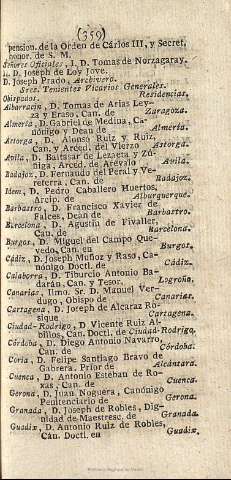 (359)
pension. de la Orden de Cárlos III, y Secret.
honor. de S. M.
Señores Oficiales, I. D. Tomas de Norzagaray.
II. D. Joseph de Loy Jove.
D. Joseph Prado, Archivero.
Sres. Tenientes Vicarios Generales.
Obispados. Residencias.
Albarracin, D. Tomas de Arias Ley-
za y Eraso, Can. de Zaragoza.
Almeria, D. Gabriel de Medina, Ca-
nónigo y Dean de Almeria.
Astorga, D. Alonso Ruiz y Ruiz,
Can. y Arced. del Vierzo Astorga.
Avila, D. Baltasar de Lezaeta y Zú-
ñiga, Arced. de Arévalo Avila.
Badajoz, D. Fernando del Peral y Ve-
reterra, Can. de Badajoz.
Idem, D. Pedro Caballero Huertos,
Arcip. de Alburquerque.
Barbastro, D. Francisco Xavier de
Falces, Dean de Barbastro.
Barcelona, D. Agustin de Fivaller,
Can. de Barcelona.
Burgos, D. Miguel del Campo Que-
vedo, Can. en Burgos.
Cádiz, D. Joseph Muñoz y Raso, Ca-
nónigo Doctl. de Cádiz.
Calaborra, D. Tiburcio Antonio Ba-
darán, Can. y Tesor. Logroño.
Canarias, Ilmo. Sr. D. Manuel Ver-
dugo, Obispo de Canarias.
Cartagena, D. Joseph de Alcaraz Ro-
sique Cartagena.
Ciudad-Rodrigo, D. Vicente Ruiz Al-
billos, Can. Doctl. de Ciudad-Rodrigo.
Córdoba, D. Diego Antonio Navarro,
Can. de Córdoba.
Coria, D. Felipe Santiago Bravo de
Gabrera. Prior de Alcántara.
Cuenca, D. Antonio Esteban de Ro-
xas, Can. de Cuenca.
Gerona, D. Juan Noguera, Canónigo
Penitenciario de Gerona.
Granada, D. Joseph de Robles, Dig-
nidad de Maestresc. de Granada.
Guadix, D. Antonio Ruiz de Robles,
Cán. Doctl. en Guadix.